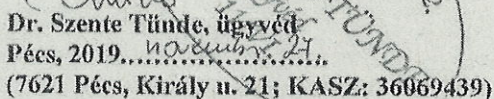 Dr. Szente Tünde, ügyvéd
Pécs, 2019. november 27.
(7621 Pécs, Király u. 21; KASZ: 36069439)